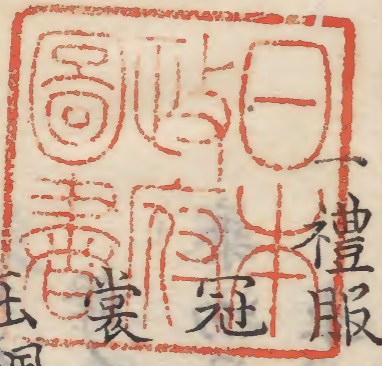 日本
政府
圖書
一禮服
冠
裳